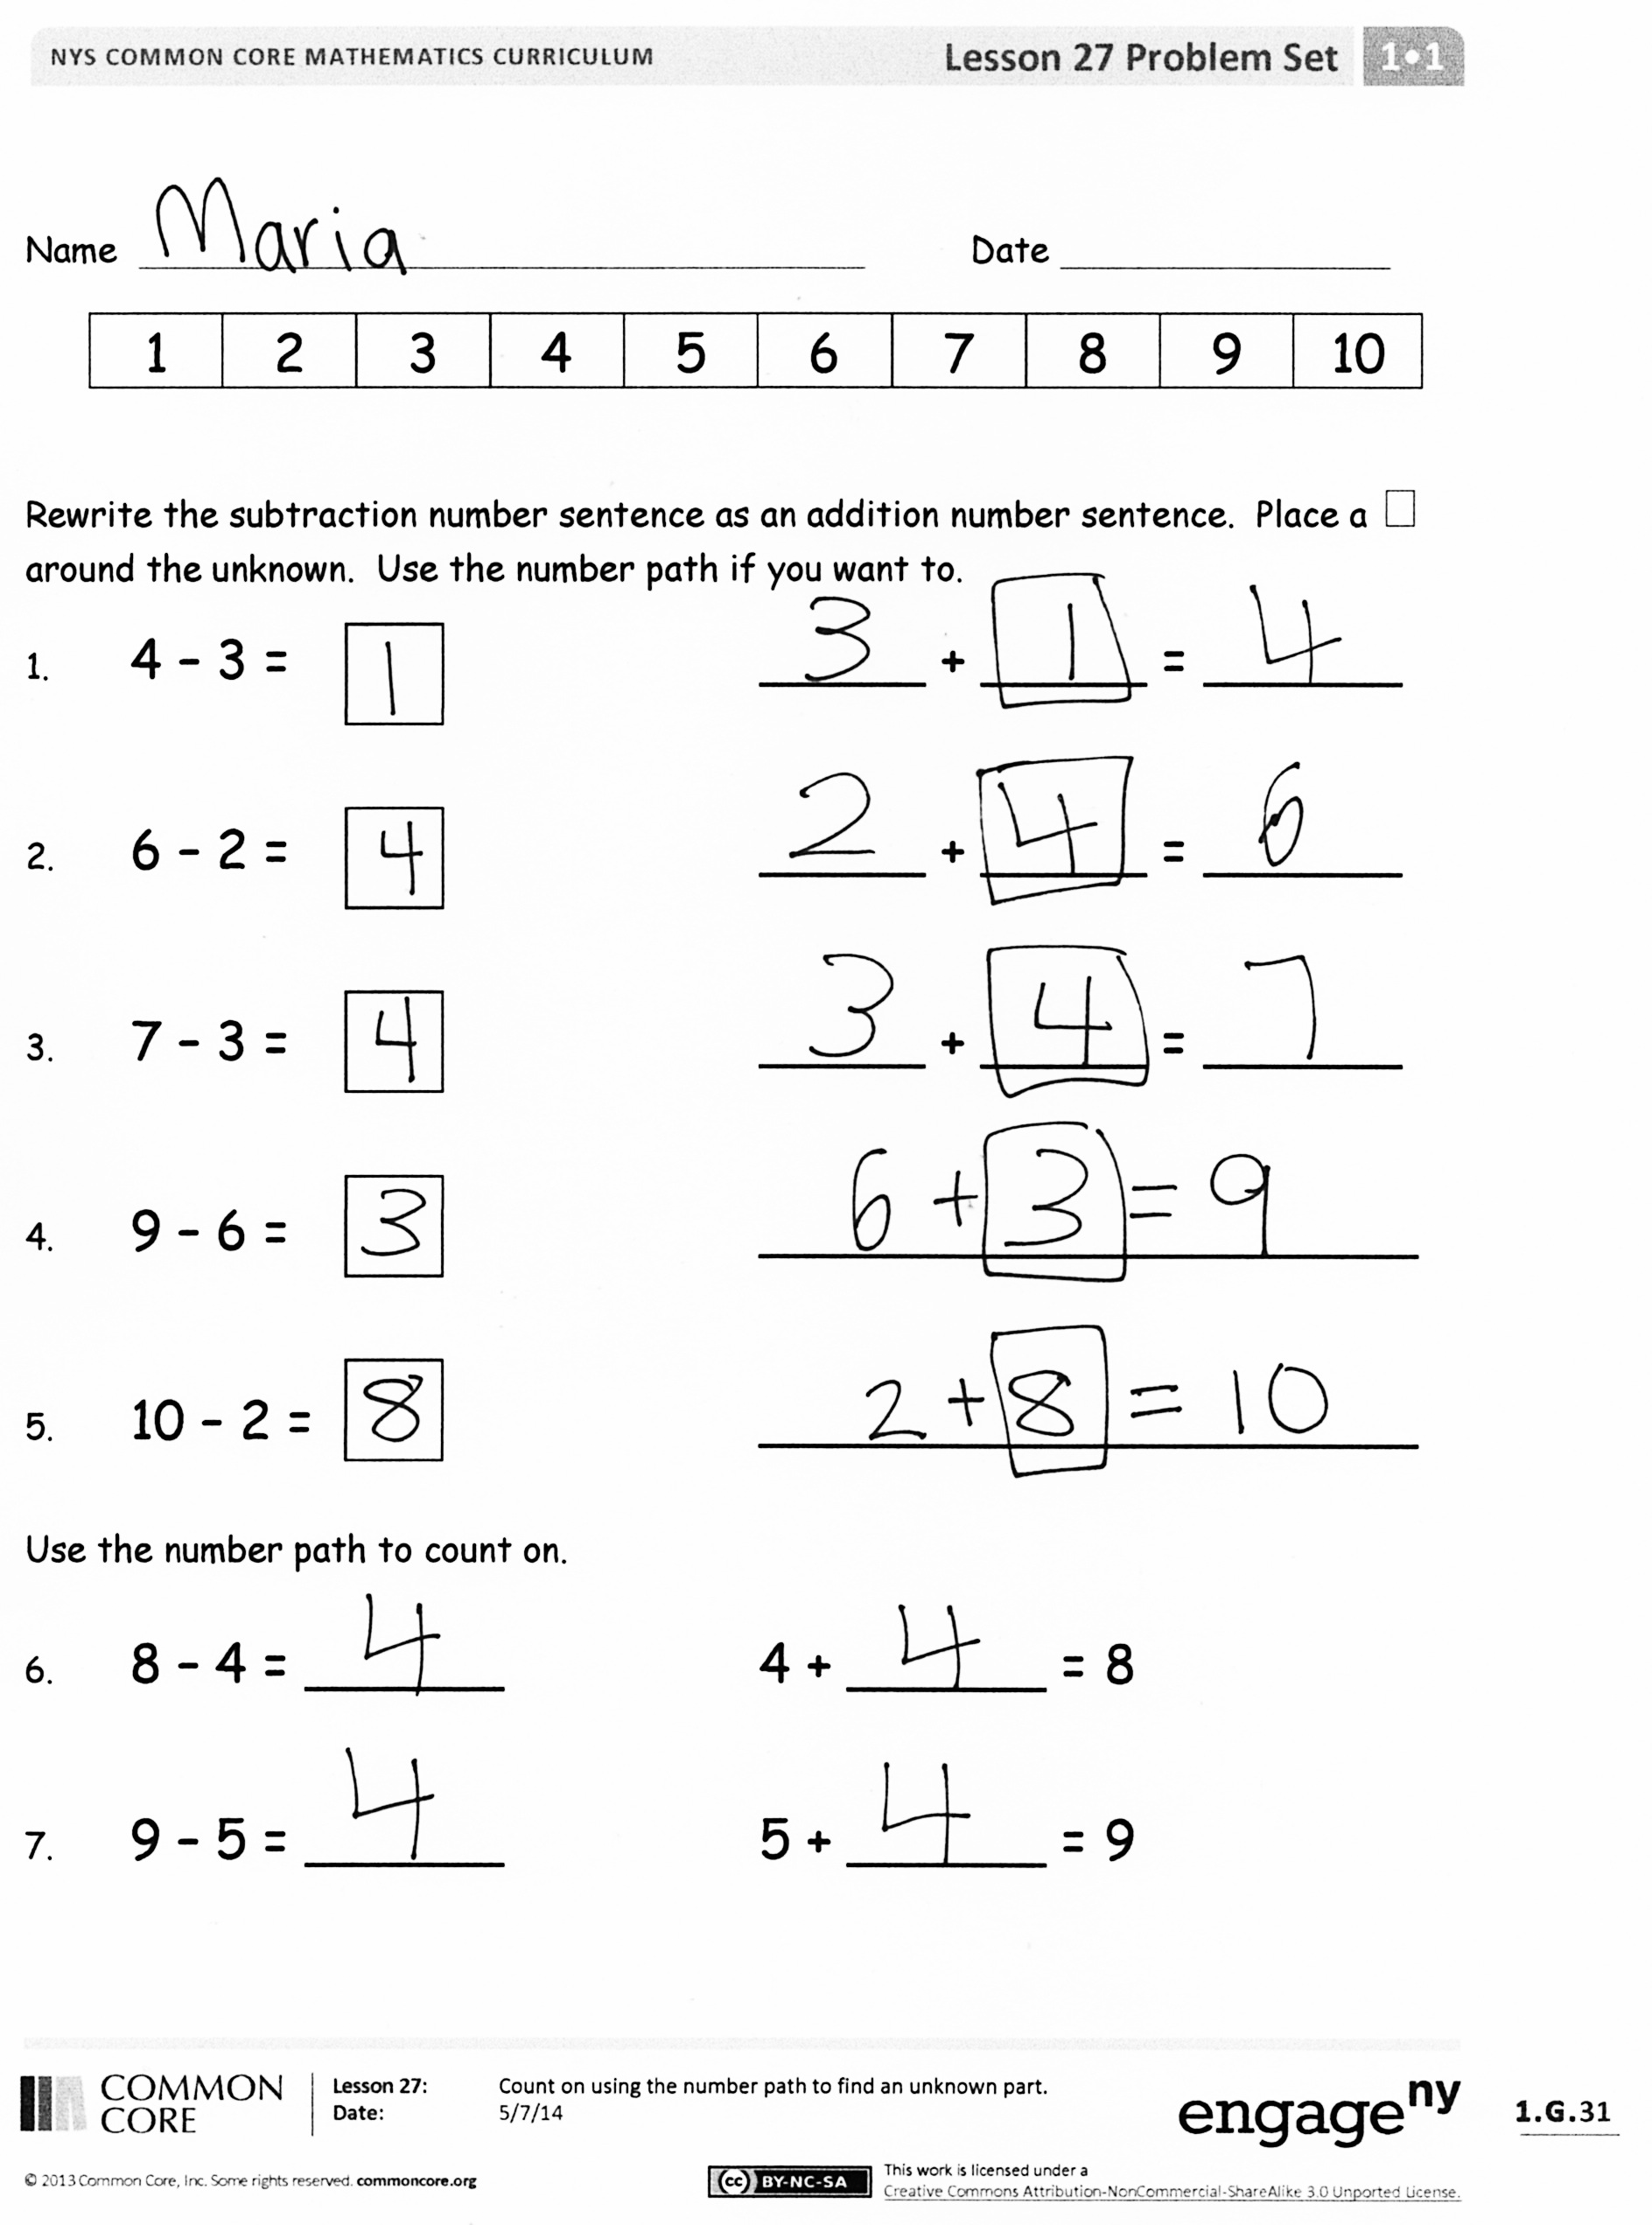 NYS COMMON CORE MATHEMATICS CURRICULUM Lesson 27 Problem Set 1•1
Name Maria Date
1 2 3 4 5 6 7 8 9 10
Rewrite the subtraction number sentence as an addition number sentence. Place a □
around the unknown. Use the number path if you want to.
1. 4 - 3 = 1 3 + 1 = 4
2. 6 - 2 = 4 2 + 4 = 6
3. 7 - 3 = 4 3 + 4 = 7
4. 9 - 6 = 3 6 + 3 = 9
5. 10 - 2 = 8 2 + 8 = 10
Use the number path to count on.
6. 8 - 4 = 4 4 + 4 = 8
7. 9 - 5 = 4 5 + 4 = 9
COMMON CORE
Lesson 27: Count on using the number path to find an unknown part.
Date: 5/7/14
engage ny 1.G.31
© 2013 Common Core, Inc. Some rights reserved. commoncore.org
cc BY-NC-SA
This work is licensed under a
Creative Commons Attribution-NonCommercial-ShareAlike 3.0 Unported License.